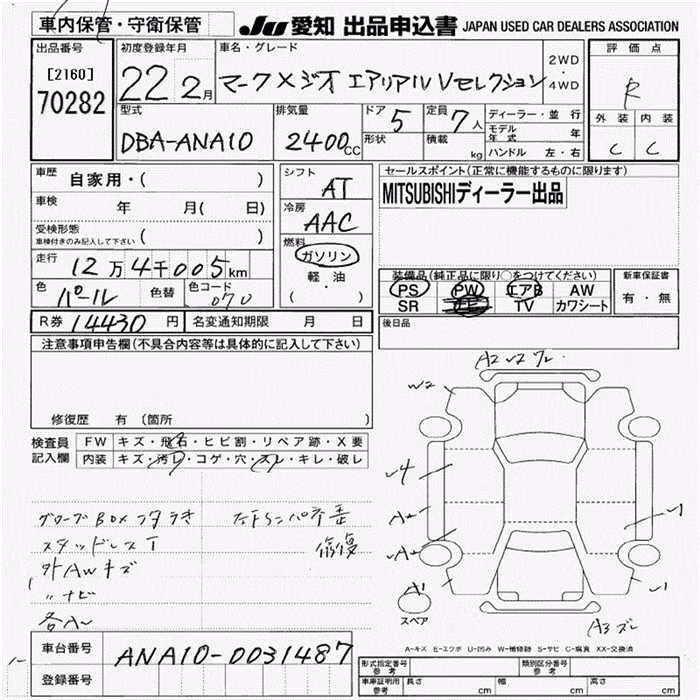 車内保管・守衛保管
JU 愛知 出品申込書 JAPAN USED CAR DEALERS ASSOCIATION
出品番号 初度登録年月 車名・グレード 2WD・4WD 評価点
[2160] 70282
22 2月
マークXジオ エアリアル Vセレクション
R
外装 内装
C C
型式 排気量 ドア 5 定員 7人 ディーラー・並行
DBA-ANA10 2400CC 形状 積載 kg モデル年式 年
ハンドル 左・右
車歴 自家用・( )
シフト AT
セールスポイント(正常に機能するものに限ります)
MITSUBISHIディーラー出品
車検 年 月( 日)
冷房 AAC
受検形態 車検付きのみ記入して下さい ( )
燃料 ガソリン
軽・油
( )
走行 12万4千005km
色 パール 色替 色コード 070
装備品(純正品に限り○をつけてください) 新車保証書
PS PW エアB AW 有・無
SR TV カワシート
R券 14430円 名変通知期限 月 日
後日品
注意事項申告欄(不具合内容等は具体的に記入して下さい)
修復歴 有 (箇所
検査員記入欄 FW キズ・飛石・ヒビ割・リペア跡・X要
内装 キズ・汚レ・コゲ・穴・スレ・キレ・破レ
グローブBOX
スタッドレス
外AWキズ
〃ナビ
修復
A2
W2
A2
A2
A1
スペア
A3
A-キズ E-エクボ U-凹み W-補修跡 S-サビ C-腐食 XX-交換済
車台番号 ANA10-0031487
登録番号
形式指定番号 参考 類別区分番号 参考
車庫証明用 参考 長さ cm 幅 cm 高さ cm